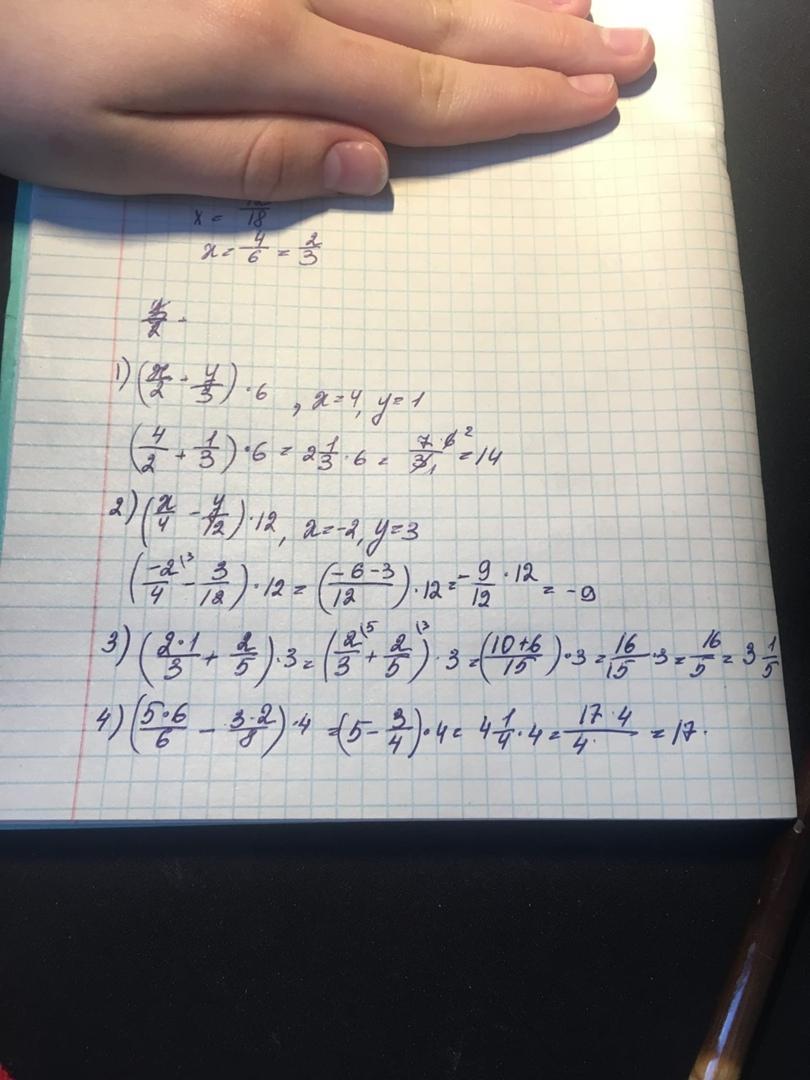 x = 12/18
x = 4/6 = 2/3
1) (x/2 + y/3) · 6 , x = 4, y = 1
(4/2 + 1/3) · 6 = 2 1/3 · 6 = 7·6²/3₁ = 14
2) (x/4 - y/12) · 12 , x = -2, y = 3
(-2\3/4 - 3/12) · 12 = (-6-3/12) · 12 = -9/12 · 12 = -9
3) (2·1/3 + 2/5) · 3 = (2\5/3 + 2\3/5) · 3 = (10+6/15) · 3 = 16/15 · 3 = 16/5 = 3 1/5
4) (5·6/6 - 3·2/8) · 4 = (5 - 3/4) · 4 = 4 1/4 · 4 = 17·4/4 = 17.